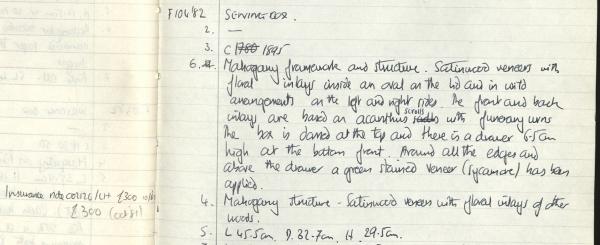 F10482 SEWING BOX.
2. —
3. C 1780 1895
6. 4. Mahogany framework and structure. Satinwood veneers with
floral inlays inside an oval on the lid and in
arrangements on the left and right sides. The front and back
inlays are based on acanthus scrolls with funerary urns
The box is domed at the top and there is a drawer 6.5cm
high at the bottom front. Around all the edges and
above the drawer a green stained veneer (sycamore) has been
applied.
Insurance £300
£300
4. Mahogany structure - Satinwood veneers with floral inlays of other
woods.
5. L 45.5cm. D. 32.7cm, H 29.5cm.